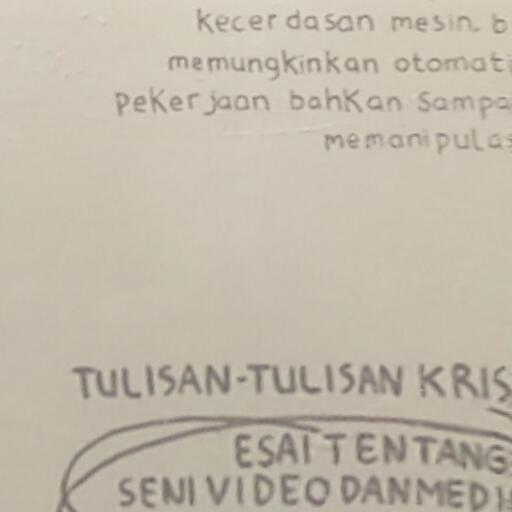 kecerdasan mesin. b
memungkinkan otomati
pekerjaan bahkan sampa
memanipulas
TULISAN-TULISAN KRIS
ESAI TENTANG
SENI VIDEO DAN MEDI